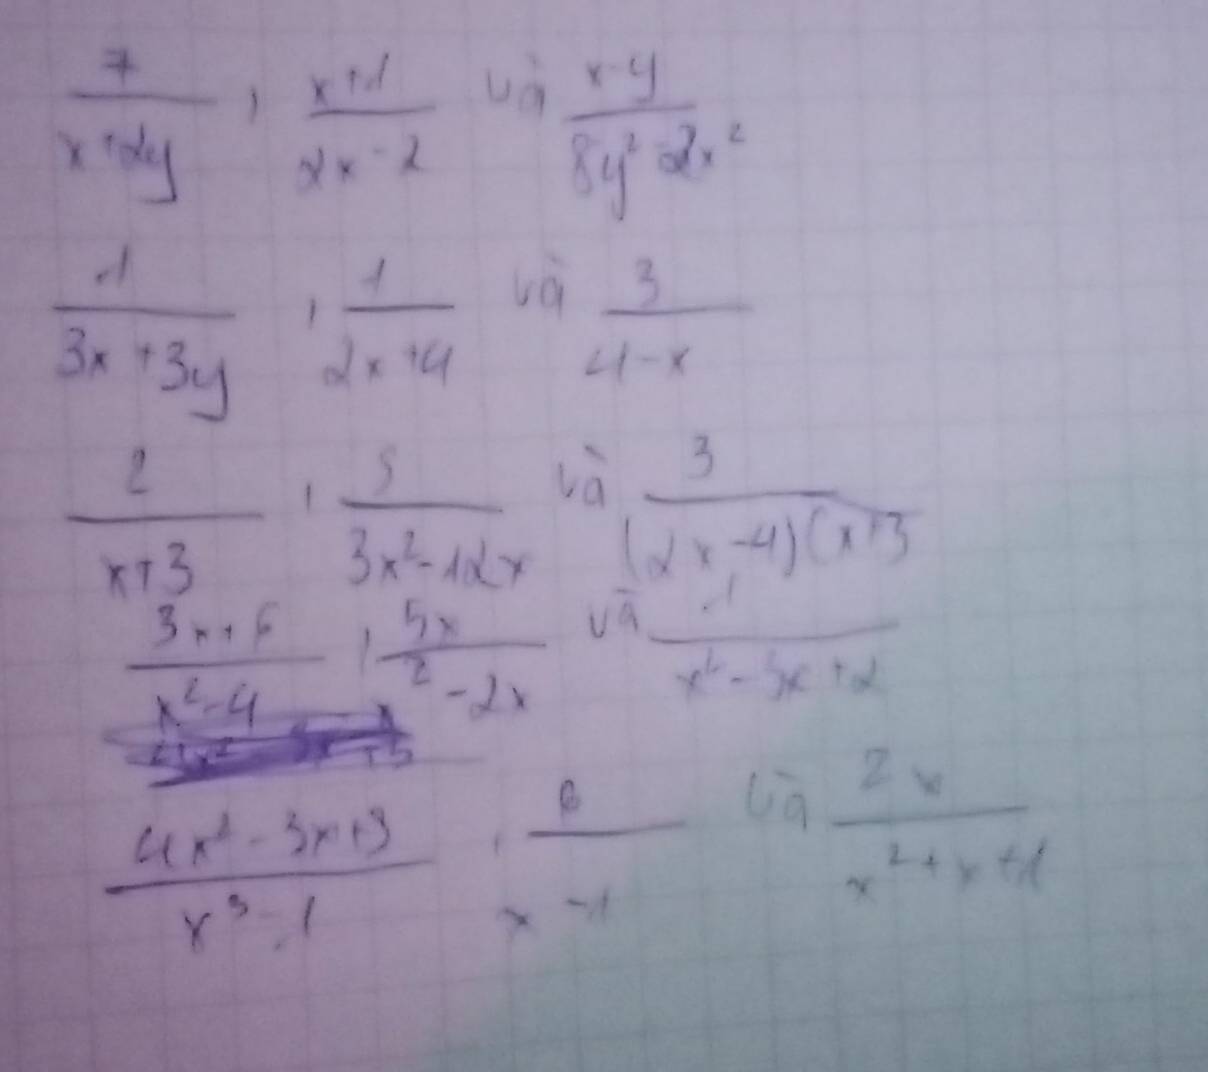 7/(x+2y) , (x+1)/(2x-2) và (x-y)/(8y²-2x²)
1/(3x+3y) , 1/(2x+4) và 3/(4-x)
2/(x+3) , 5/(3x²-12x) và 3/((2x-4)(x+3
(3x+6)/(x²-4) , 5x/(x²-2x) và 1/(x²-3x+2)
(4x²-3x+3)/(x³-1) , 6/(x-1) và 2x/(x²+x+1)